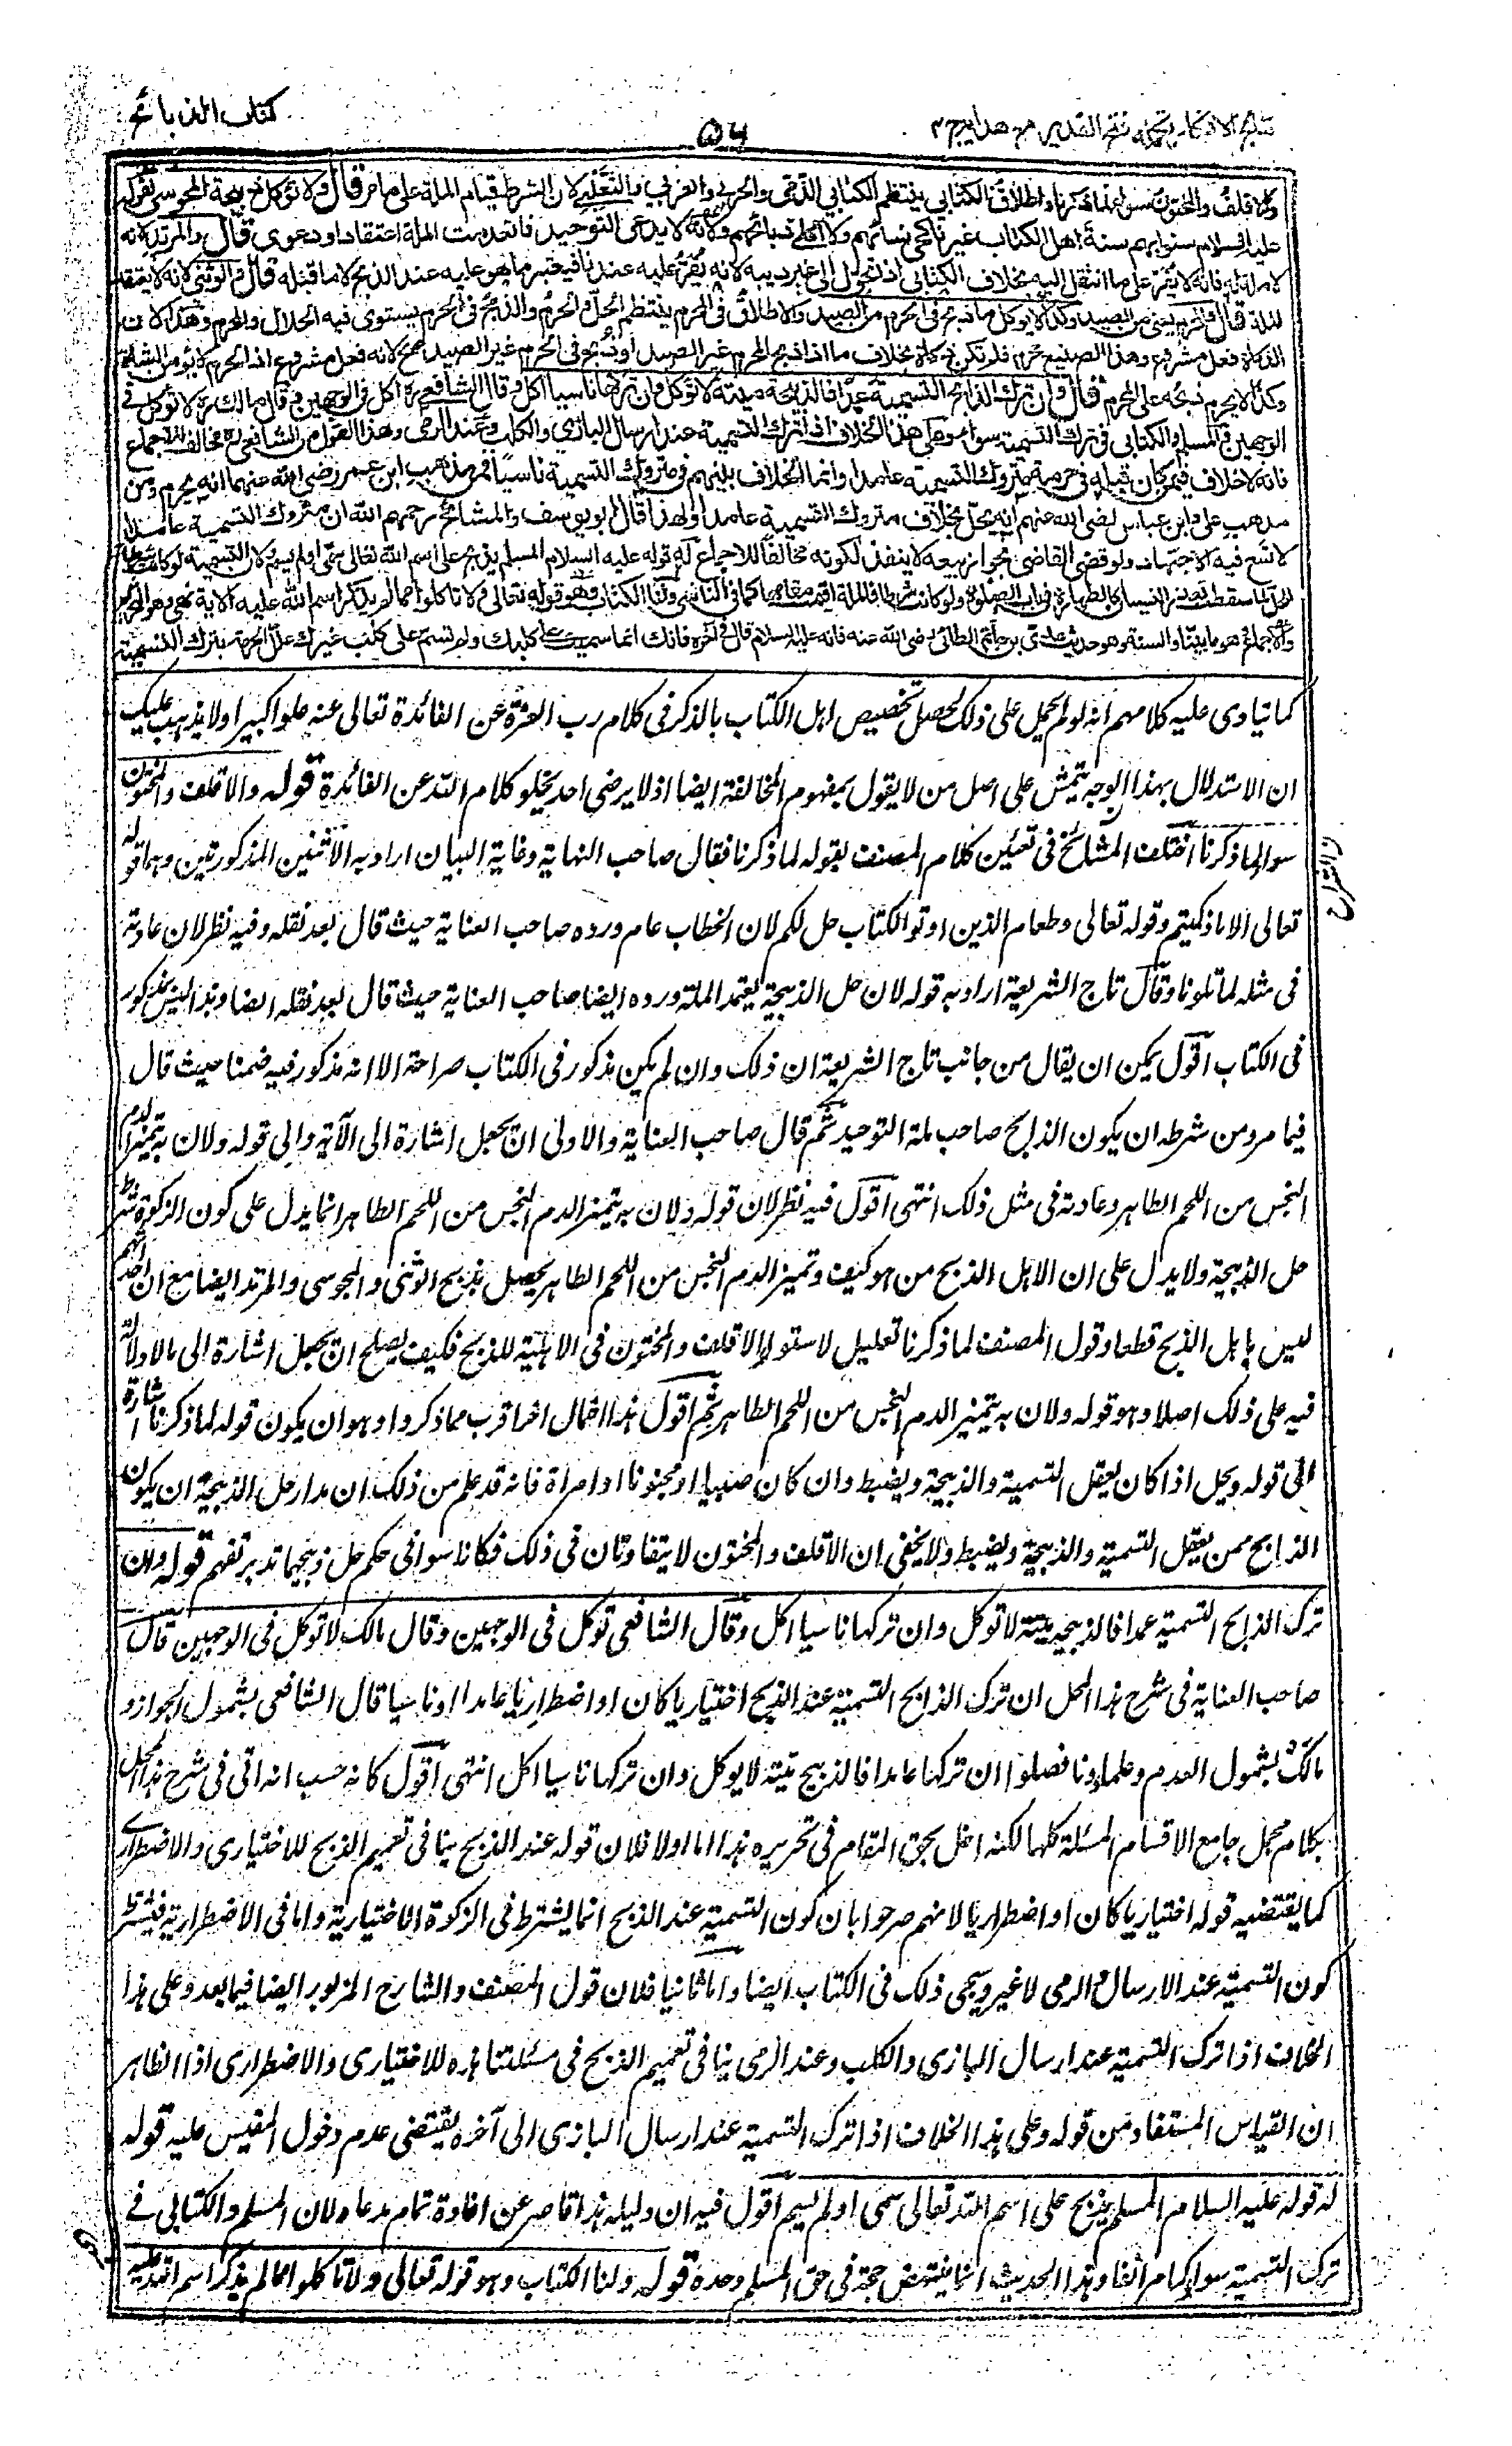 كتاب الذبائح
نتائج الافكار تكملة فتح القدير مع هداية ج ٤
٥٦
والاقلف والمختون سواء لما ذكرنا واطلاق الكتابي ينتظم الكتابي الذمى والحربي والعربي والتغلبي لان الشرط قيام الملة على ما مر قال ولا تؤكل ذبيحة المجوسى لقوله
عليه السلام سنوا بهم سنة اهل الكتاب غير ناكحي نسائهم ولا آكلي ذبائحهم ولانه لا يدعى التوحيد فانعدمت الملة اعتقادا ودعوى قال والمرتد لانه
لا ملة له فانه لا يقر على ما انتقل اليه بخلاف الكتابي اذا تحول الى غير دينه لانه يقر عليه عندنا فيعتبر ما هو عليه عند الذبح لا ما قبله قال والوثنى لانه لا يعتقد
الملة قال والمحرم يعنى من الصيد وكذا لا يوكل ما ذبح في الحرم من الصيد والاطلاق في المحرم ينتظم الحل والحرم والذبح فى الحرم يستوى فيه الحلال والمحرم وهذا لان
الذكاة فعل مشروع وهذا الصنيع محرم فلم تكن ذكاة بخلاف ما اذا ذبح المحرم غير الصيد او ذبح فى الحرم غير الصيد صح لانه فعل مشروع اذ الحرم لا يؤمن الشاة
وكذا لا يحرم ذبحه على المحرم قال وان ترك الذابح التسمية عمدا فالذبيحة ميتة لا تؤكل وان تركها ناسيا اكل وقال الشافعي ره اكل فى الوجهين وقال مالك ره لا تؤكل فى
الوجهين والمسلم والكتابي فى ترك التسمية سواء وعلى هذا الخلاف اذا ترك التسمية عند ارسال البازي والكلب وعند الرمى وهذا القول من الشافعي ره مخالف للاجماع
فانه لا خلاف فيمن كان قبله فى حرمة متروك التسمية عامدا وانما الخلاف بينهم فى متروك التسمية ناسيا فمن مذهب ابن عمر رضى الله عنهما انه يحرم ومن
مذهب على وابن عباس رضى الله عنهم انه يحل بخلاف متروك التسمية عامدا ولهذا قال ابو يوسف والمشائخ رحمهم الله ان متروك التسمية عامدا
لا يسع فيه الاجتهاد ولو قضى القاضى بجواز بيعه لا ينفذ لكونه مخالفا للاجماع له قوله عليه السلام المسلم يذبح على اسم الله تعالى سمى او لم يسم ولان التسمية لو كانت شرطا
للحل لما سقطت بعذر النسيان كالطهارة فى باب الصلوة ولو كانت شرطا فالملة اقيمت مقامها كما فى الناسى ولنا الكتاب وهو قوله تعالى ولا تاكلوا مما لم يذكر اسم الله عليه الآية نهى وهو للتحريم
والاجماع هو ما بينا والسنة وهو حديث عدى بن حاتم الطائى رضى الله عنه فانه عليه السلام قال فى آخره فانك انما سميت على كلبك ولم تسم على كلب غيرك علل الحرمة بترك التسمية
كما ينادى عليه كلامهم انه لو لم يحمل على ذلك لحصل تخصيص اهل الكتاب بالذكر فى كلام رب العزة عن الفائدة تعالى عنه علوا كبيرا ولا يذهب عليك
ان الاستدلال بهذا الوجه يتمشى على اصل من لا يقول بمفهوم المخالفة ايضا اذ لا يرضى احد بخلو كلام الله عن الفائدة قوله والاقلف والمختون
سواء لما ذكرنا اختلف المشائخ فى تعيين كلام المصنف بقوله لما ذكرنا فقال صاحب النهاية وغاية البيان اراد به الآيتين المذكورتين وهما قوله
الشراح
تعالى الا ما ذكيتم وقوله تعالى وطعام الذين اوتوا الكتاب حل لكم لان الخطاب عام ورده صاحب العناية حيث قال بعد نقله وفيه نظر لان عادته
فى مثله لما تلونا وقال تاج الشريعة اراد به قوله لان حل الذبيحة يعتمد الملة ورده ايضا صاحب العناية حيث قال بعد نقله ايضا وهذا ليس بمذكور
فى الكتاب اقول يمكن ان يقال من جانب تاج الشريعة ان ذلك وان لم يكن مذكور فى الكتاب صراحة الا انه مذكور فيه ضمنا حيث قال
فيما مر ومن شرطه ان يكون الذابح صاحب ملة التوحيد ثم قال صاحب العناية والاولى ان يجعل اشارة الى الآية والى قوله ولان به يتميز الدم
النجس من اللحم الطاهر وعادته فى مثل ذلك انتهى اقول فيه نظر لان قوله ولان به يتميز الدم النجس من اللحم الطاهر انما يدل على كون الزكوة شرط
حل الذبيحة ولا يدل على ان الاهل الذبح من هو كيف وتميز الدم النجس من اللحم الطاهر يحصل بذبح الوثنى والمجوسى والمرتد ايضا مع ان احدا منهم
ليس باهل الذبح قطعا وقول المصنف لما ذكرنا تعليل لاستواء الاقلف والمختون فى الاهلية للذبح فكيف يصلح ان يجعل اشارة الى ما لا دلالة
فيه على ذلك اصلا وهو قوله ولان به يتميز الدم النجس من اللحم الطاهر ثم اقول هذا احتمال اخر اقرب مما ذكروا وهو ان يكون قوله لما ذكرنا اشارة
الى قوله ويحل اذا كان يعقل التسمية والذبيحة ويضبط وان كان صبيا او مجنونا او امراة فانه قد علم من ذلك ان مدار حل الذبيحة ان يكون
الذابح ممن يعقل التسمية والذبيحة ويضبط ولا يخفى ان الاقلف والمختون لا يتفاوتان فى ذلك فكانا سواء فى حكم حل ذبيحتهما تدبر تفهم قوله وان
ترك الذابح التسمية عمدا فالذبيحة ميتة لا توكل وان تركها ناسيا اكل وقال الشافعى توكل فى الوجهين وقال مالك لا توكل فى الوجهين قال
صاحب العناية فى شرح هذا المحل ان ترك الذابح التسمية عند الذبح اختياريا كان او اضطراريا عامدا او ناسيا قال الشافعى بشمول الجواز و
مالك بشمول العدم وعلماؤنا فصلوا ان تركها عامدا فالذبيح ميتة لا يوكل وان تركها ناسيا اكل انتهى اقول كانه حسب انه اتى فى شرح هذا المحل
بكلام مجمل جامع لاقسام المسئلة كلها لكنه اخل بحق المقام فى تحريره هذا اما اولا فلان قوله عند الذبح ينافى تعميم الذبح للاختيارى والاضطرارى
كما يقتضيه قوله اختياريا كان او اضطراريا لانهم صرحوا بان كون التسمية عند الذبح انما يشترط فى الزكوة الاختيارية واما فى الاضطرارية فيشترط
كون التسمية عند الارسال والرمى لا غير ويجئ ذلك فى الكتاب ايضا واما ثانيا فلان قول المصنف والشارح المزبور ايضا فيما بعد وعلى هذا
الخلاف اذا ترك التسمية عند ارسال البازى والكلب وعند الرمى ينافى تعميم الذبح فى مسئلتنا هذه للاختيارى والاضطرارى اذ الظاهر
ان القياس المستفاد من قوله وعلى هذا الخلاف اذا ترك التسمية عند ارسال البازى الى آخره يقتضى عدم دخول المقيس عليه قوله
له قوله عليه السلام المسلم يذبح على اسم الله تعالى سمى او لم يسم اقول فيه ان دليله هذا قاصر عن افادة تمام مدعاه لان المسلم والكتابى فى
ترك التسمية سواء كما مر آنفا وهذا الحديث انما ينتهض حجة فى حق المسلم وحده قوله ولنا الكتاب وهو قوله تعالى ولا تاكلوا مما لم يذكر اسم الله عليه